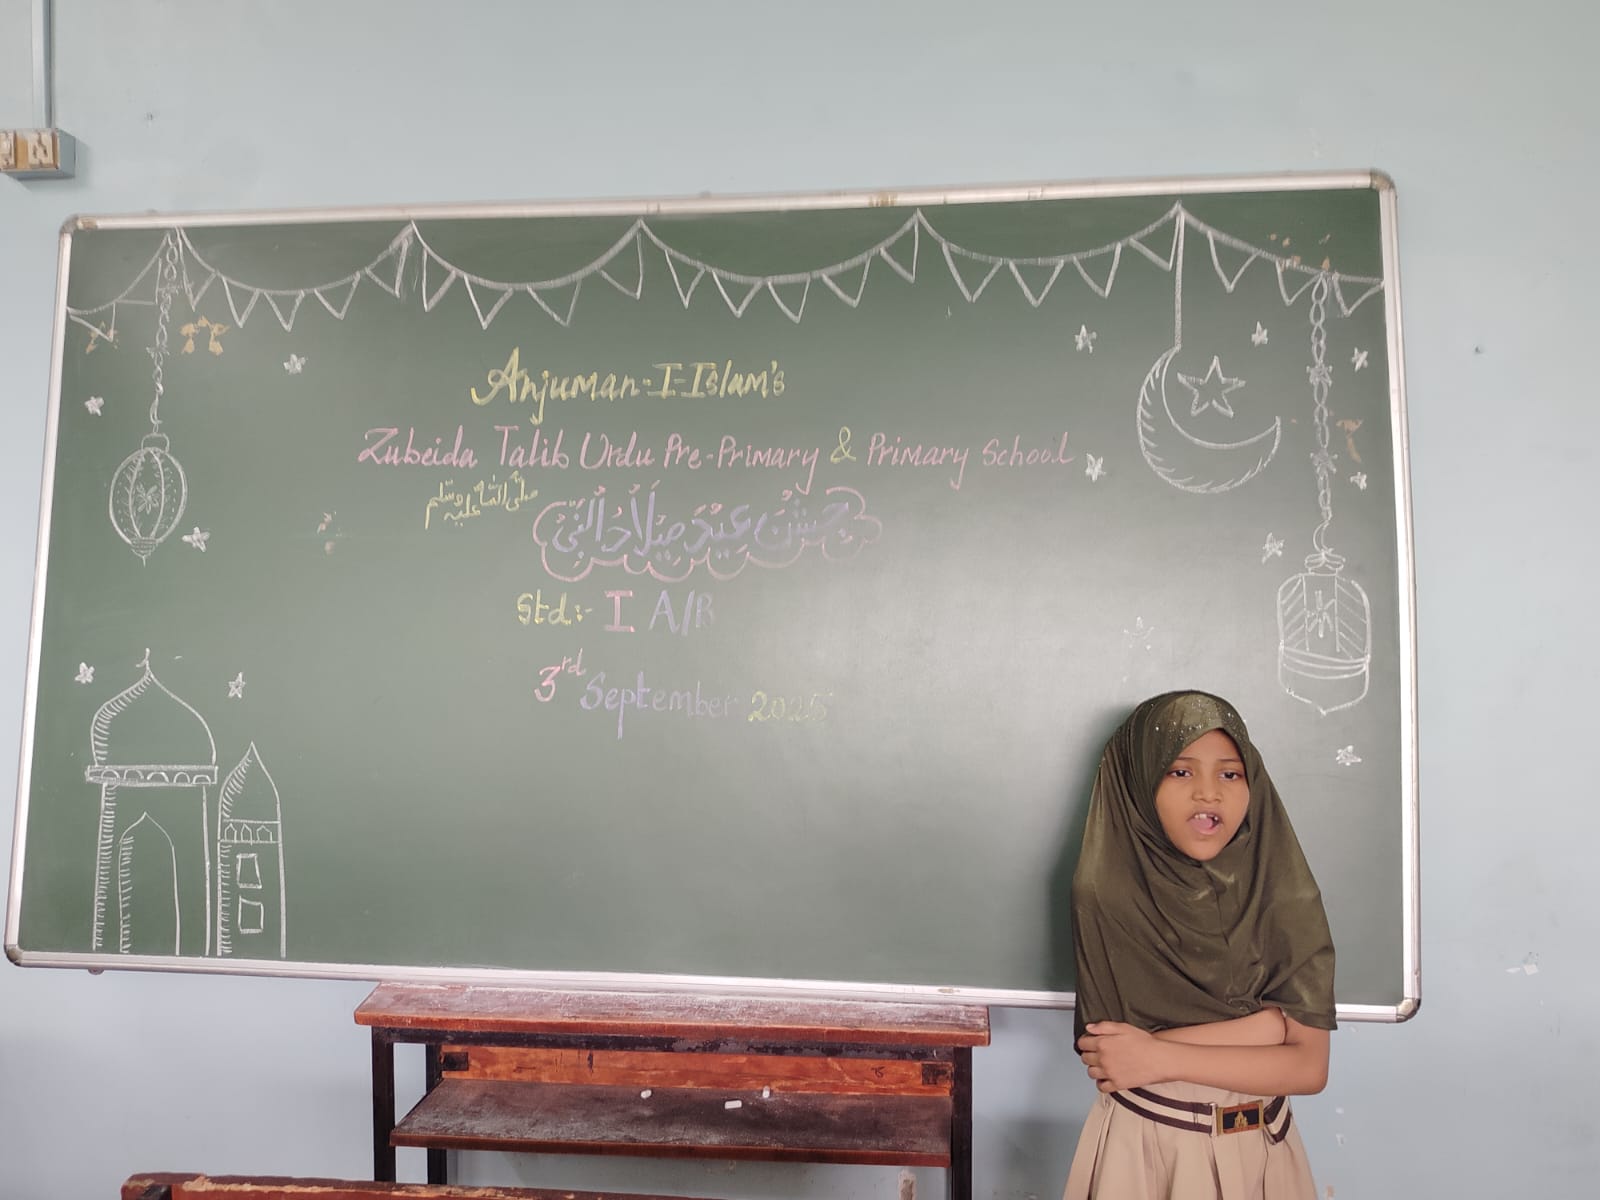 Anjuman-I-Islam's
Zubeida Talib Urdu Pre-Primary & Primary School
جشن عید میلاد النبی صلی اللہ علیہ وسلم
Std:- I A/B
3rd September 2025